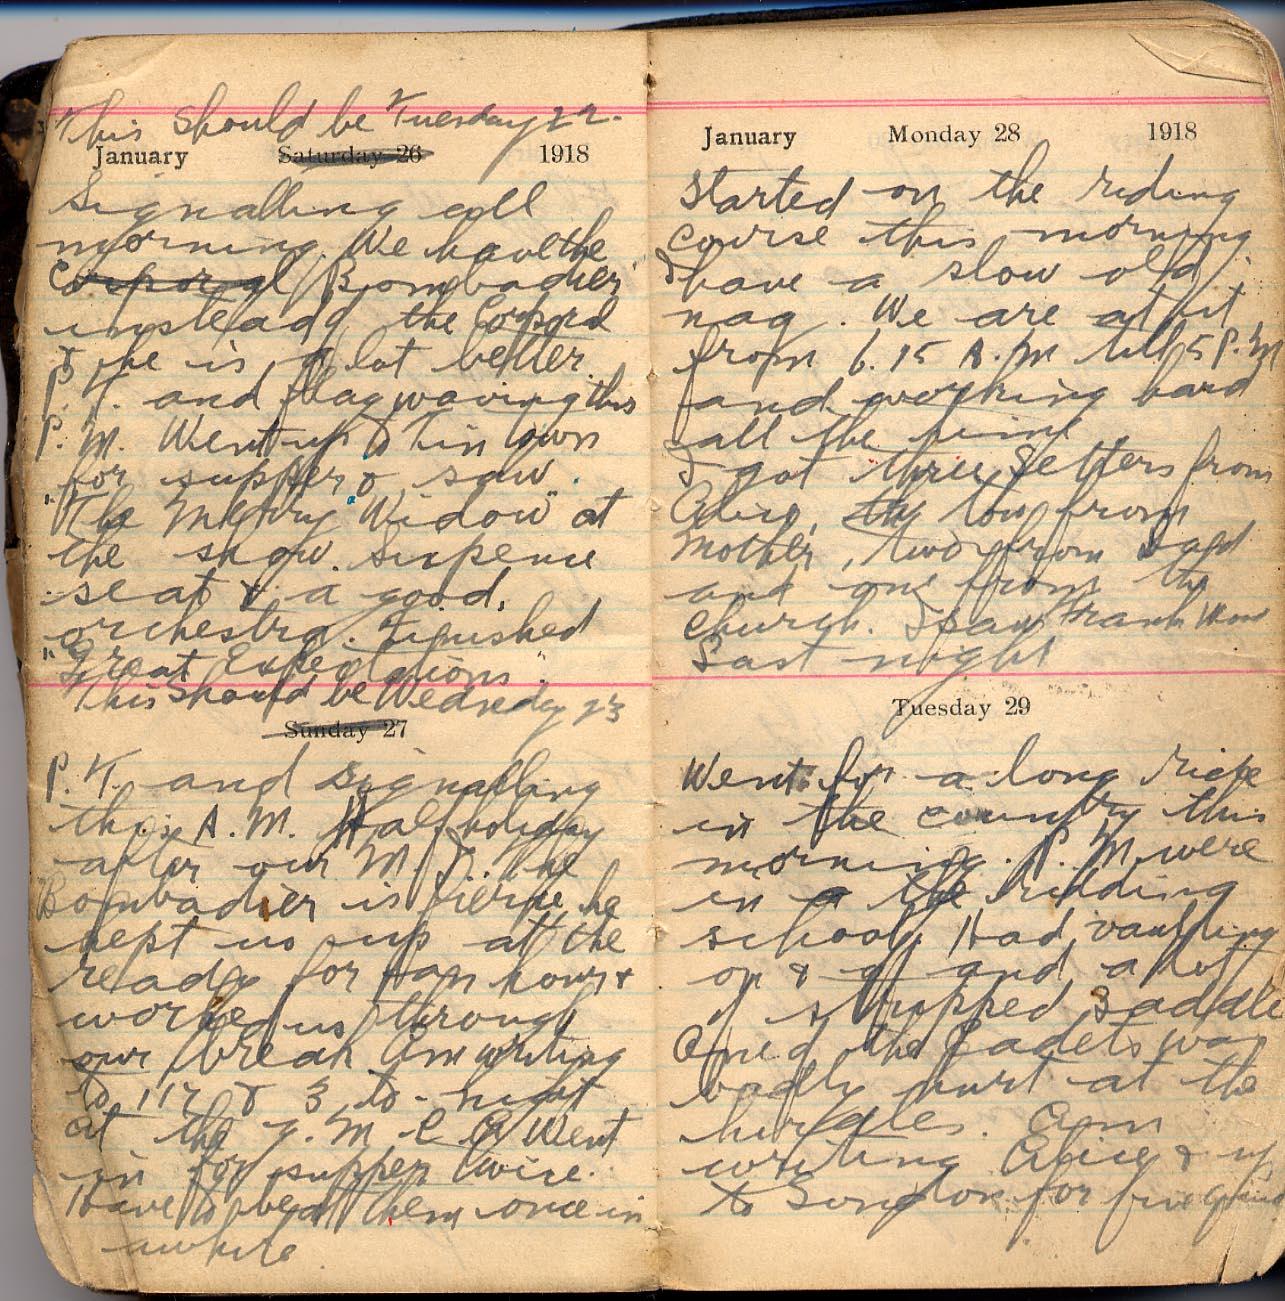 This should be Tuesday 22.
January Saturday 26 1918
Signalling all
morning. We have the
Corporal Bombadier
instead of the Corporal
& he is a lot better.
P. T. and flagwaving this
P. M. Went up to tin town
for supper & saw
"The Merry Widow" at
the show. Sixpence
seat & a good
orchestra. Finished
"Great Expectations".
This should be Wednesday 23
Sunday 27
P. T. and signalling
this A. M. Half holiday
after our M. I. The
Bombadier is fierce he
kept us up at the
ready for hours &
worked us through
our break Am writing
to 117 & 3 to-night
at the Y. M. C. A Went
in for supper twice.
Have to beat them once in
awhile
January Monday 28 1918
Started on the riding
course this morning.
& have a slow old
nag. We are at it
from 6.15 A.M till 5 P.M
and working hard
all the time
I got three letters from
Alice, two from
Mother, two from Dad
and one from the
church. I saw Frank
Last night
Tuesday 29
Went for a long ride
in the country this
morning. P. M. were
in a the ridding
school. Had vaulting
on & off and a lot
of stropped saddle
One of the Cadets was
badly hurt at the
hurdles. Am
writing Alice & up
to London for